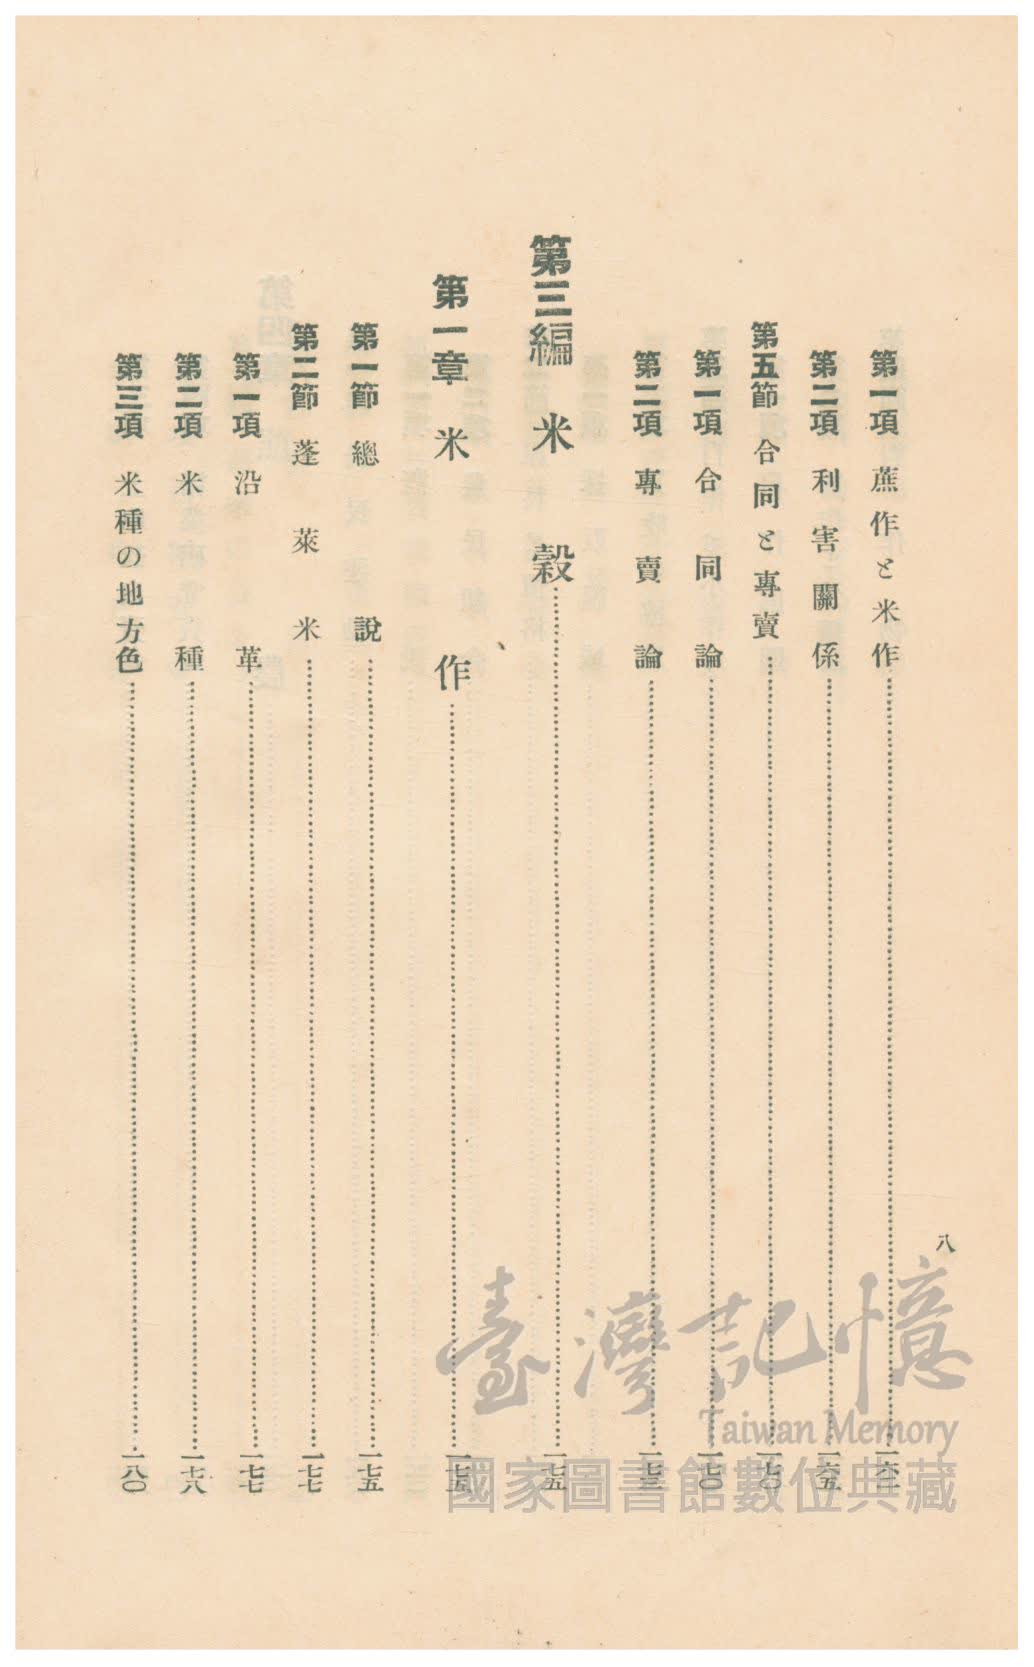 八
第一項 蔗作と米作……一六二
第二項 利害關係……一六五
第五節 合同と專賣……一七〇
第一項 合同論……一七〇
第二項 專賣論……一七三
第三編 米穀……一七五
第一章 米作……一七五
第一節 總說……一七五
第二節 蓬萊米……一七七
第一項 沿革……一七七
第二項 米種……一七八
第三項 米種の地方色……一八〇
臺灣記憶
Taiwan Memory
國家圖書館數位典藏